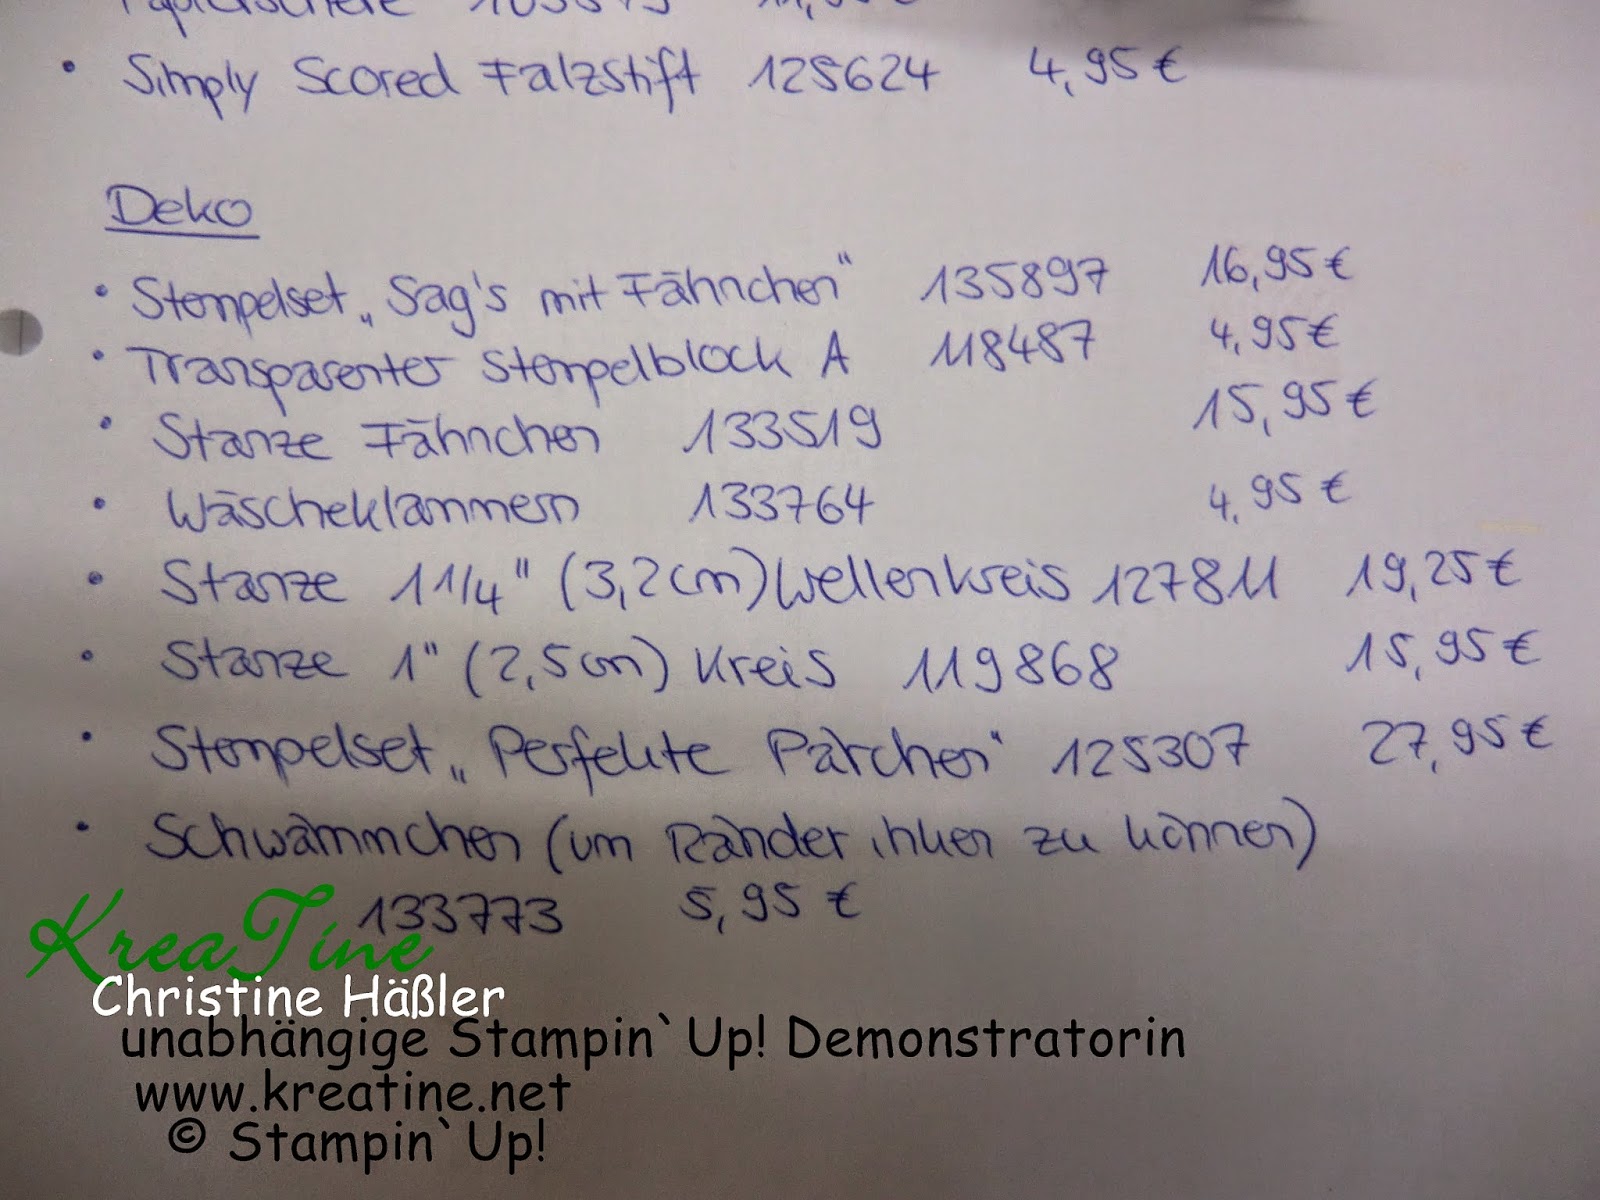 • Simply Scored Falzstift 125624 4,95€
Deko
• Stempelset „Sag's mit Fähnchen" 135897 16,95€
• Transparenter Stempelblock A 118487 4,95€
• Stanze Fähnchen 133519 15,95€
• Wäscheklammern 133764 4,95€
• Stanze 1 1/4" (3,2cm) Wellenkreis 127811 19,25€
• Stanze 1" (2,5cm) Kreis 119868 15,95€
• Stempelset „Perfekte Pärchen" 125307 27,95€
• Schwämmchen (um Ränder inken zu können)
133773 5,95 €
KreaTine
Christine Häßler
unabhängige Stampin`Up! Demonstratorin
www.kreatine.net
© Stampin`Up!